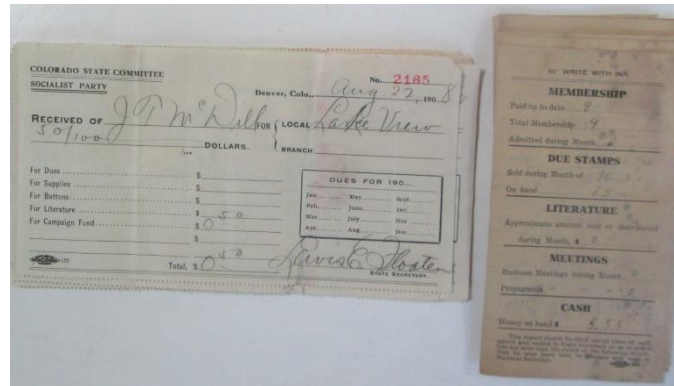 COLORADO STATE COMMITTEE
SOCIALIST PARTY
No. 2165
Denver, Colo., Aug 22, 1908
RECEIVED OF J T McDill FOR LOCAL Lake View
50/100 DOLLARS. BRANCH
For Dues $
For Supplies $
For Buttons $
For Literature $ 0 50
For Campaign Fund $
$
Total, $ 0 50
DUES FOR 190
Jan. May Sept.
Feb. June Oct.
Mar. July Nov.
Apr. Aug. Dec.
Lewis E. Floaten
STATE SECRETARY.
WRITE WITH INK
MEMBERSHIP
Paid up to date 9
Total Membership 9
Admitted during Month
DUE STAMPS
Sold during Month of 10
On hand
LITERATURE
Approximate amount sold or distributed
during Month, $ 0
MEETINGS
Business Meetings during Month, 0
Propaganda
CASH
Money on hand $